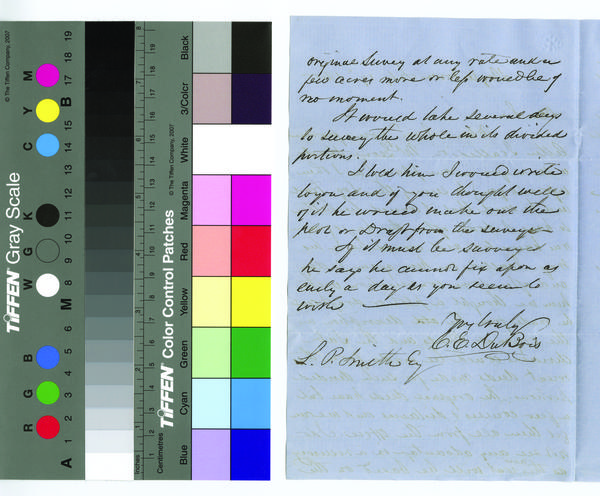 © The Tiffen Company, 2007
TIFFEN® Gray Scale
R G B W G K C Y M
A 1 2 3 4 5 6 M 8 9 10 11 12 13 14 15 B 17 18 19
Inches
Centimetres
TIFFEN® Color Control Patches
© The Tiffen Company, 2007
Blue
Cyan
Green
Yellow
Red
Magenta
White
3/Color
Black
original survey at any rate and a
few acres more or less would be of
no moment.
It would take several days
to survey the whole in its divided
portions.
I told him I would write
to you and if you thought well
of it he would make out the
plot or Draft from the surveys—
If it must be surveyed
he says he cannot fix upon as
early a day as you seem to
wish
Very truly
C. E. DuBois
L. P. Smith Esq